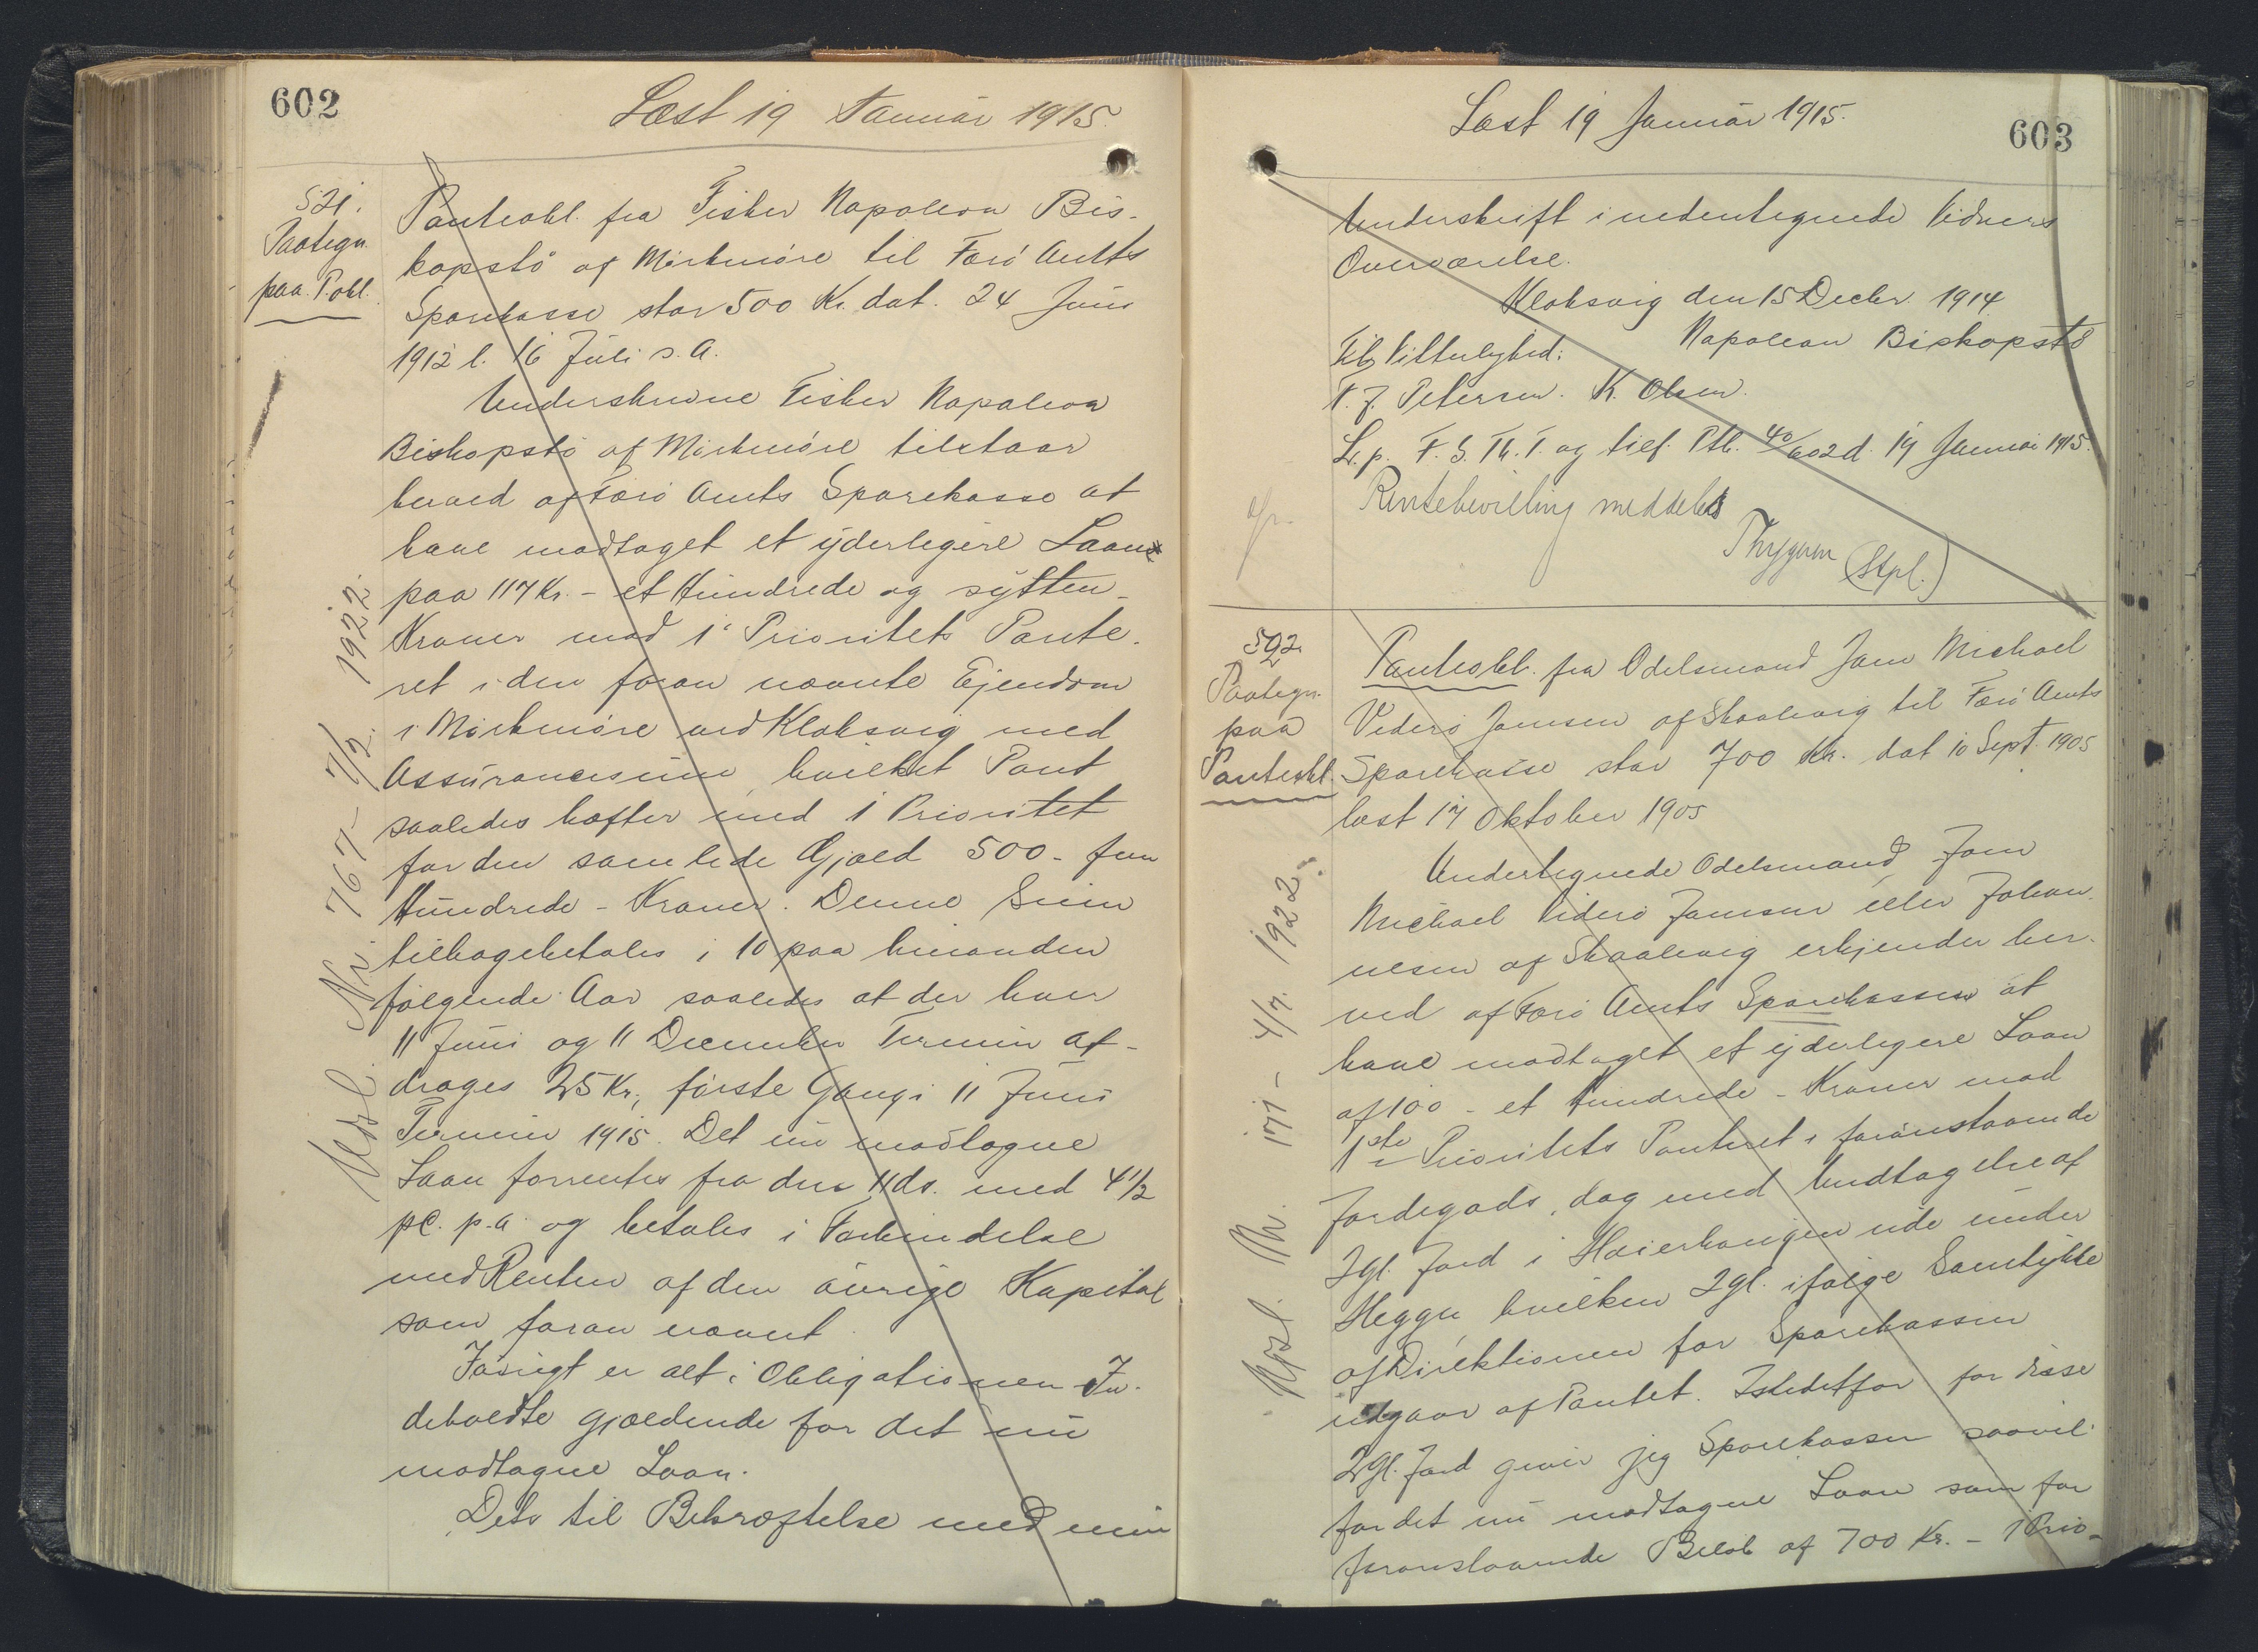 602
Læst 19 Januar 1915.
521.
Paategn.
paa P.obl.
Panteobl. fra Fisker Napoleon Bis-
kopstø af Mörkmöre til Færö Amts
Sparekasse stor 500 Kr. dat. 24 Juni
1912 l. 16 Juli s. A.
Underskrevne Fisker Napoleon
Biskopstö af Mörkmöre tilstaar
herved af Færö Amts Sparekasse at
have modtaget et yderligere Laan
paa 117 Kr. - et Hundrede og sytten -
Kroner mod 1' Prioritets Pante-
ret i den foran nævnte Ejendom
i Mörkmöre ved Klaksvig med
Assurancesum, hvilket Pant
saaledes hæfter med 1 Prioritet
for den samlede Gjæld 500 - fem
Hundrede - Kroner. Denne Sum
tilbagebetales i 10 paa hinanden
følgende Aar saaledes at der hver
11 Juni og 11 December Termin af-
drages 25 Kr., første Gang i 11 Juni
Termin 1915. Det nu modtagne
Laan forrentes fra den 11 ds. med 4 1/2
pC. p.a. og betales i Forbindelse
med Renten af den øvrige Kapital
som foran nævnt.
Iøvrigt er alt i Obligationen In-
deholdte gjældende for det nu
modtagne Laan.
Dets til Bekræftelse med min
Aflæst Nr. 767 - 7/2. 1922.
603
Læst 19 Januar 1915.
Underskrift i nedentegnede Vidners
Overværelse.
Klaksvig den 15 Decbr. 1914
Napoleon Biskopstø
Til Vitterlighed:
F. J. Petersen. K. Olsen.
L. p. F. S. Th. T. og tilf. Ptb. 40/602 d. 19 Januar 1915.
Rentebevilling meddeles
Thygesen (Stpl.)
522.
Paategn.
paa
Panteobl.
Panteobl. fra Odelsmand Jam Michael
Viderö Jamsen af Skaalevig til Færö Amts
Sparekasse stor 700 Kr. dat 10 Sept. 1905
læst 17 Oktober 1905
Undertegnede Odelsmand Jam
Michael Viderö Jamsen eller Johan-
nesen af Skaalevig erkjender her-
ved af Færö Amts Sparekassen at
have modtaget et yderligere Laan
af 100 - et Hundrede - Kroner mod
1ste Prioritets Panteret i foranstaaende
Jordegods, dog med Undtagelse af
2 gl. Jord i Haierhougen ude under
Heggu hvilken 2 gl. ifølge Samtykke
af Direktionen for Sparekassen
udgaar af Pantet. Istedetfor for disse
2 gl. Jord giver jeg Sparekassen saavel
for det nu modtagne Laan som for
foranstaaende Beløb af 700 Kr. - 1 Prio-
Nr. 171 - 4/7. 1922.